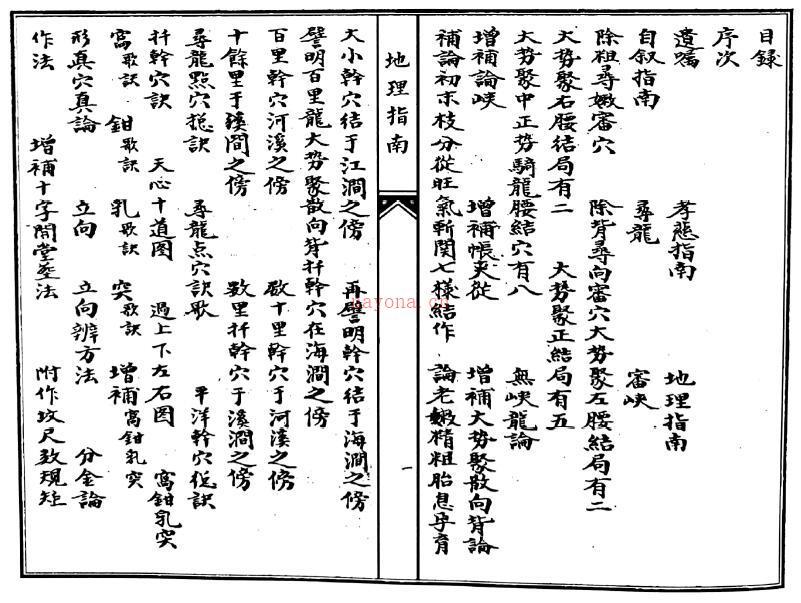 目录
序次
遗嘱　孝慈指南　地理指南
自叙指南　尋龍　審峽
除祖尋嫩審穴　除背尋向審穴大势聚左腰結局有二
大势聚右腰结局有二　大势聚正結局有五
大势聚中正势騎龍腰結穴有八　無峽龍論
增補論峽　增補帳夹從　增補大势聚散向背論
補論初末枝分從旺氣斬関七樣結作　論老嫩精粗胎息孕育
地理指南
一
大小幹穴结于江澗之傍　再譬明幹穴结于海澗之傍
譬明百里龍大势聚散向背扦幹穴在海澗之傍
百里幹穴河溪之傍　数十里幹穴于河溪之傍
十餘里于溪澗之傍　数里扦幹穴于溪澗之傍
尋龍點穴捴訣　尋龍点穴訣歌　平洋幹穴捴訣
扦幹穴訣　天心十道图　過上下左右图　窩鉗乳突
窩歌訣　鉗歌訣　乳歌訣　突歌訣　增補窩鉗乳突
形真穴真論　立向　立向辨方法　分金論
作法　增補十字開堂奎法　附作坟尺数規矩
nayona.cn